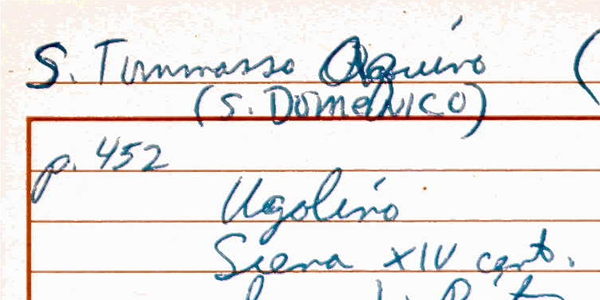 S. Tommasso Aquino (
(S. DOMENICO)
p. 452
Ugolino
Siena XIV cent.